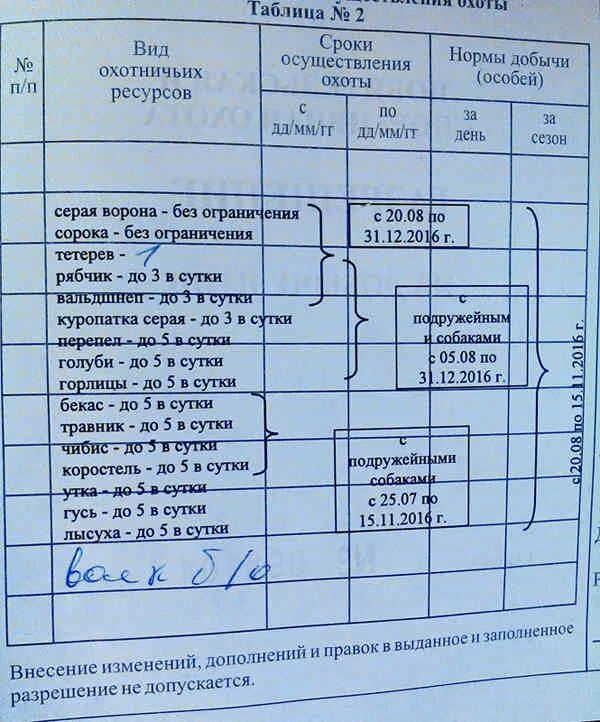 осуществления охоты
Таблица № 2
№ п/п
Вид охотничьих ресурсов
Сроки осуществления охоты
Нормы добычи (особей)
с дд/мм/гг
по дд/мм/гг
за день
за сезон
серая ворона - без ограничения
сорока - без ограничения
тетерев - 1
рябчик - до 3 в сутки
вальдшнеп - до 3 в сутки
куропатка серая - до 3 в сутки
перепел - до 5 в сутки
голуби - до 5 в сутки
горлицы - до 5 в сутки
бекас - до 5 в сутки
травник - до 5 в сутки
чибис - до 5 в сутки
коростель - до 5 в сутки
утка - до 5 в сутки
гусь - до 5 в сутки
лысуха - до 5 в сутки
волк б/о
с 20.08 по
31.12.2016 г.
с
подружейными
и собаками
с 05.08 по
31.12.2016 г.
с
подружейными
собаками
с 25.07 по
15.11.2016 г.
с 20.08 по 15.11.2016 г.
Внесение изменений, дополнений и правок в выданное и заполненное
разрешение не допускается.